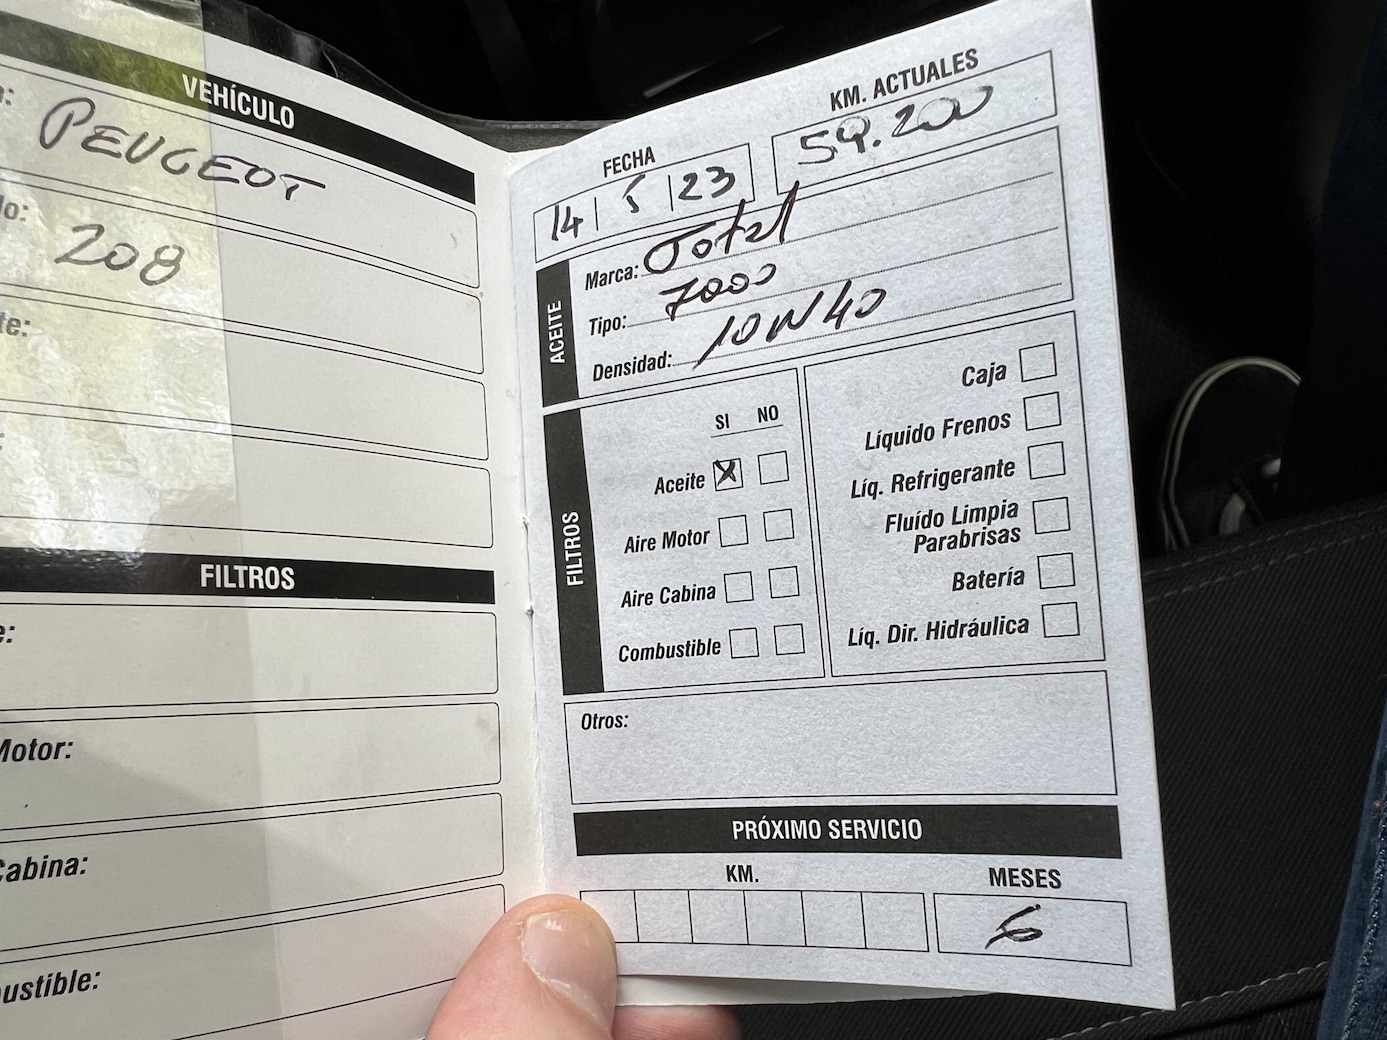 VEHÍCULO
PEUGEOT
208
FILTROS
Motor:
Cabina:
FECHA
KM. ACTUALES
14 | 5 | 23
59.200
ACEITE
Marca: Total
Tipo: 7000
Densidad: 10W40
FILTROS
SI NO
Aceite X
Aire Motor
Aire Cabina
Combustible
Caja
Líquido Frenos
Líq. Refrigerante
Fluído Limpia
Parabrisas
Batería
Líq. Dir. Hidráulica
Otros:
PRÓXIMO SERVICIO
KM.
MESES
6